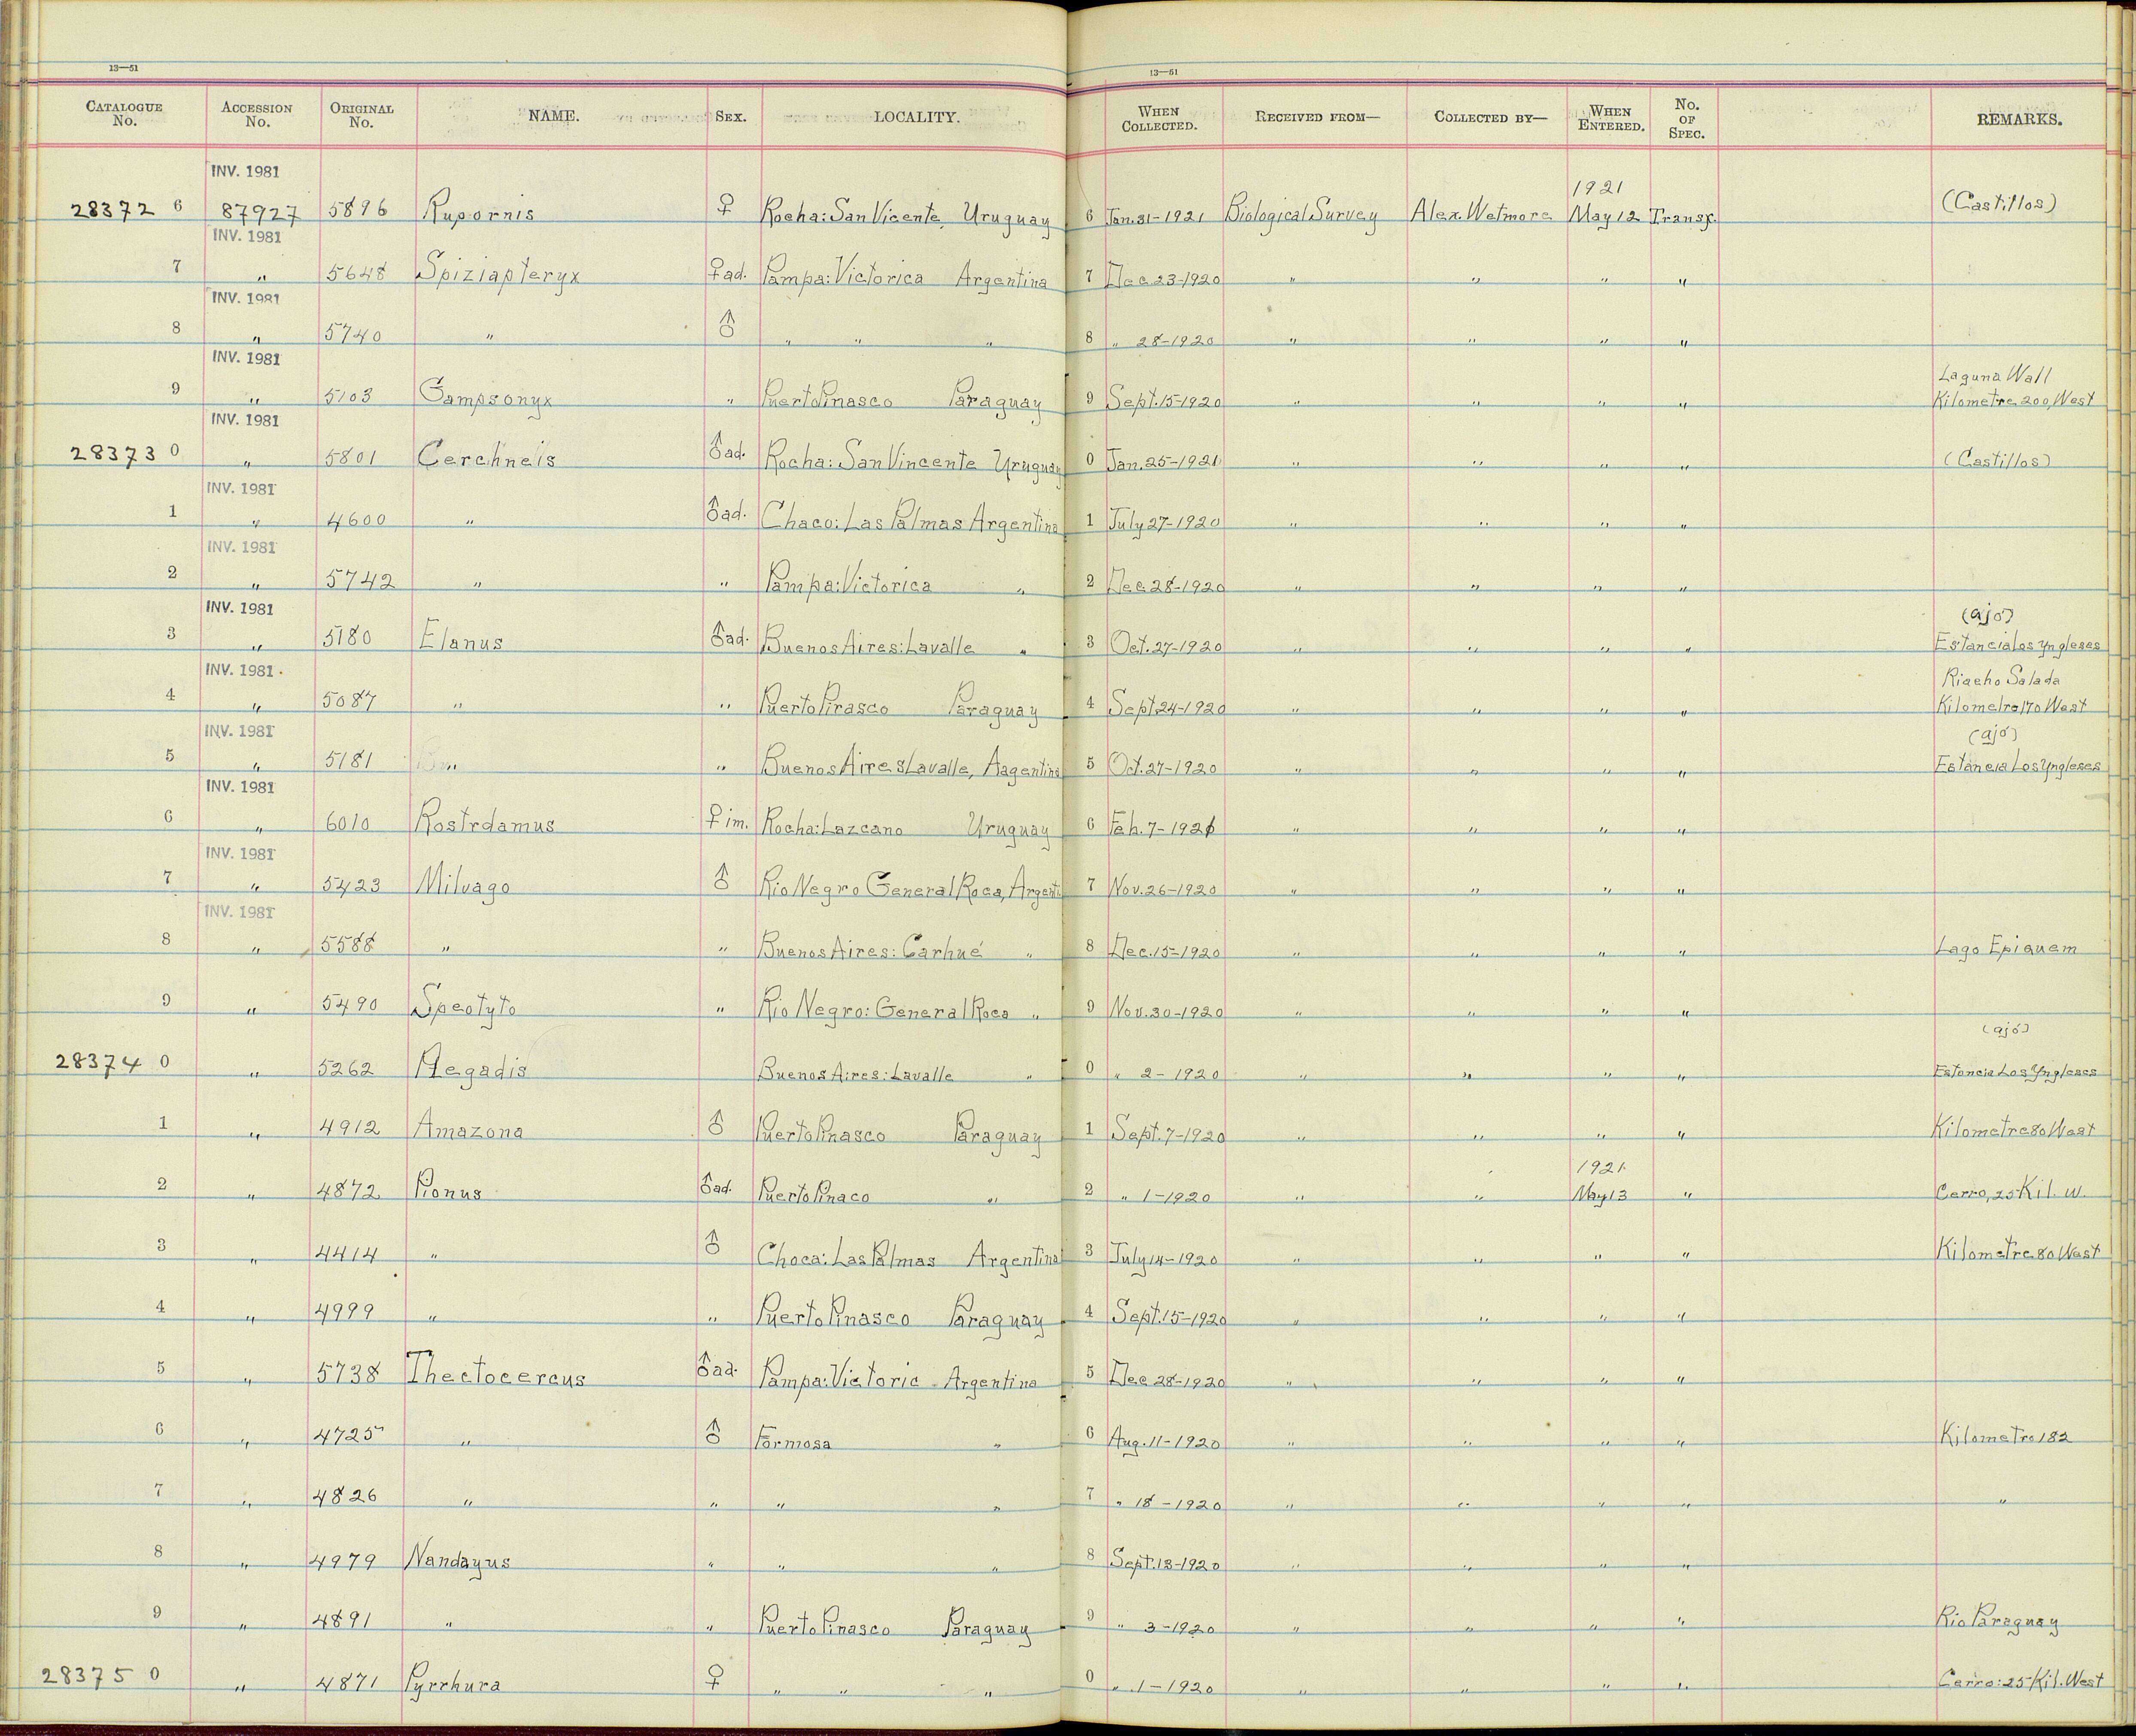 13—51 13—51
CATALOGUE No. ACCESSION No. ORIGINAL No. NAME. SEX. LOCALITY. WHEN COLLECTED. RECEIVED FROM— COLLECTED BY— WHEN ENTERED. No. OF SPEC. REMARKS.
INV. 1981
1921
28372 6 87927 5896 Rupornis ♀ Rocha: San Vicente, Uruguay 6 Jan. 31-1921 Biological Survey Alex. Wetmore May 12 Transf. (Castillos)
INV. 1981
7 " 5648 Spiziapteryx ♀ad. Pampa: Victorica Argentina 7 Dec 23-1920 " " " "
INV. 1981
8 " 5740 " ♂ " " " 8 " 28-1920 " " " "
INV. 1981
Laguna Wall
9 " 5103 Gampsonyx " Puerto Pinasco Paraguay 9 Sept. 15-1920 " " " " Kilometre 200, West
INV. 1981
28373 0 " 5801 Cerchneis ♂ad. Rocha: San Vincente Uruguay 0 Jan. 25-1921 " " " " (Castillos)
INV. 1981
1 " 4600 " ♂ad. Chaco: Las Palmas Argentina 1 July 27-1920 " " " "
INV. 1981
2 " 5742 " " Pampa: Victorica " 2 Dec. 28-1920 " " " "
INV. 1981
(ajó)
3 " 5180 Elanus ♂ad. Buenos Aires: Lavalle " 3 Oct. 27-1920 " " " " Estancia Los Yngleses
INV. 1981
Riacho Salada
4 " 5087 " " Puerto Pirasco Paraguay 4 Sept 24-1920 " " " " Kilometro 170 West
INV. 1981
(ajó)
5 " 5181 " " Buenos Aires Lavalle, Aagentina 5 Oct. 27-1920 " " " " Estancia Los Yngleses
INV. 1981
6 " 6010 Rostrdamus ♀ im. Rocha: Lazcano Uruguay 6 Feb. 7-1921 " " " "
INV. 1981
7 " 5423 Milvago ♂ Rio Negro General Roca, Argenti 7 Nov. 26-1920 " " " "
INV. 1981
8 " 5588 " " Buenos Aires: Carhué " 8 Dec. 15-1920 " " " " Lago Epiquem
9 " 5490 Speotyto " Rio Negro: General Roca " 9 Nov. 30-1920 " " " "
(ajó)
28374 0 " 5262 Plegadis Buenos Aires: Lavalle " 0 " 2-1920 " " " " Estancia Los Yngleses
1 " 4912 Amazona ♂ Puerto Pinasco Paraguay 1 Sept. 7-1920 " " " " Kilometre 80 West
1921
2 " 4872 Pionus ♂ad. Puerto Pinaco " 2 " 1-1920 " " May 13 " Cerro, 25 Kil. W.
3 " 4414 " ♂ Choca: Las Palmas Argentina 3 July 14-1920 " " " " Kilometre 80 West
4 " 4999 " " Puerto Pinasco Paraguay 4 Sept. 15-1920 " " " "
5 " 5738 Thectocercus ♂ad. Pampa: Victoric Argentina 5 Dec 28-1920 " " " "
6 " 4725 " ♂ Formosa " 6 Aug. 11-1920 " " " " Kilometro 182
7 " 4826 " " " " 7 " 18-1920 " " " " "
8 " 4979 Nandayus " " " 8 Sept. 13-1920 " " " "
9 " 4891 " " Puerto Pinasco Paraguay 9 " 3-1920 " " " " Rio Paraguay
28375 0 " 4871 Pyrrhura ♀ " " " 0 " 1-1920 " " " " Cerro: 25 Kil. West